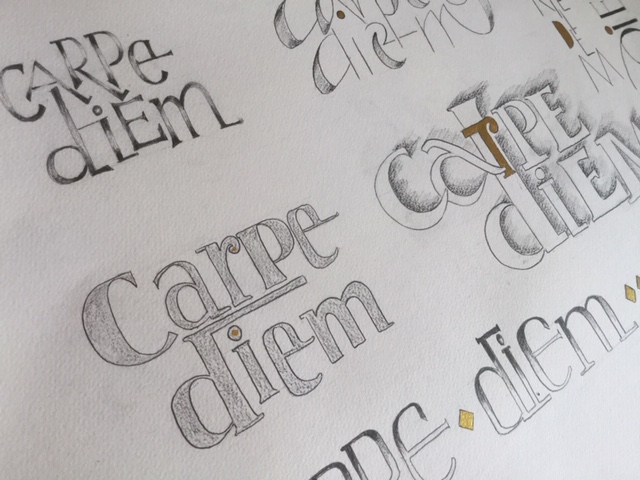 CARPe
diEM
Carpe
diem
CarPE
diEM
Carpe
diem
CARPE • diEm •